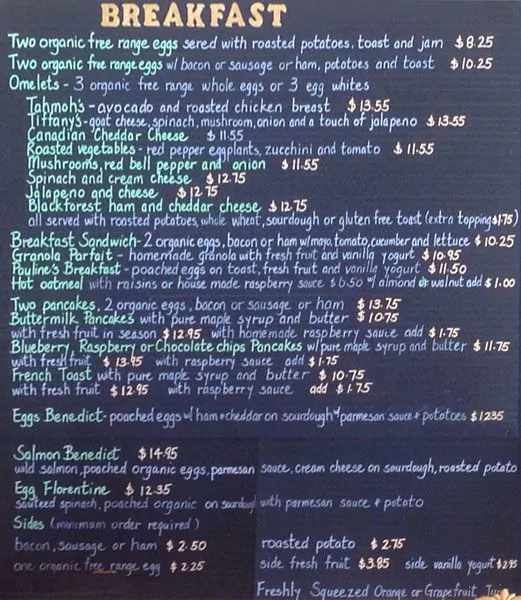 BREAKFAST
Two organic free range eggs sered with roasted potatoes, toast and jam $8.25
Two organic free range eggs w/ bacon or sausage or ham, potatoes and toast $10.25
Omelets - 3 organic free range whole eggs or 3 egg whites
Tahmoh's - avocado and roasted chicken breast $13.55
Tiffany's - goat cheese, spinach, mushroom, onion and a touch of jalapeno $13.55
Canadian Cheddar Cheese $11.55
Roasted vegetables - red pepper eggplants, zucchini and tomato $11.55
Mushrooms, red bell pepper and onion $11.55
Spinach and cream cheese $12.75
Jalapeno and cheese $12.75
Blackforest ham and cheddar cheese $12.75
all served with roasted potatoes, whole wheat, sourdough or gluten free toast (extra topping $1.75)
Breakfast Sandwich - 2 organic eggs, bacon or ham w/ mayo, tomato, cucumber and lettuce $10.25
Granola Parfait - homemade granola with fresh fruit and vanilla yogurt $10.95
Pauline's Breakfast - poached eggs on toast, fresh fruit and vanilla yogurt $11.50
Hot oatmeal with raisins or house made raspberry sauce $6.50 w/ almond or walnut add $1.00
Two pancakes, 2 organic eggs, bacon or sausage or ham $13.75
Buttermilk Pancakes with pure maple syrup and butter $10.75
with fresh fruit in season $12.95 with homemade raspberry sauce add $1.75
Blueberry, Raspberry or Chocolate chips Pancakes w/ pure maple syrup and butter $11.75
with fresh fruit $13.95 with raspberry sauce add $1.75
French Toast with pure maple syrup and butter $10.75
with fresh fruit $12.95 with raspberry sauce add $1.75
Eggs Benedict - poached eggs w/ ham + cheddar on sourdough w/ parmesan sauce + potatoes $12.35
Salmon Benedict $14.95
wild salmon, poached organic eggs, parmesan sauce, cream cheese on sourdough, roasted potato
Egg Florentine $12.35
sauteed spinach, poached organic on sourdough with parmesan sauce + potato
Sides (minimum order required)
bacon, sausage or ham $2.50 roasted potato $2.75
one organic free range egg $2.25 side fresh fruit $3.85 side vanilla yogurt $2.95
Freshly Squeezed Orange or Grapefruit